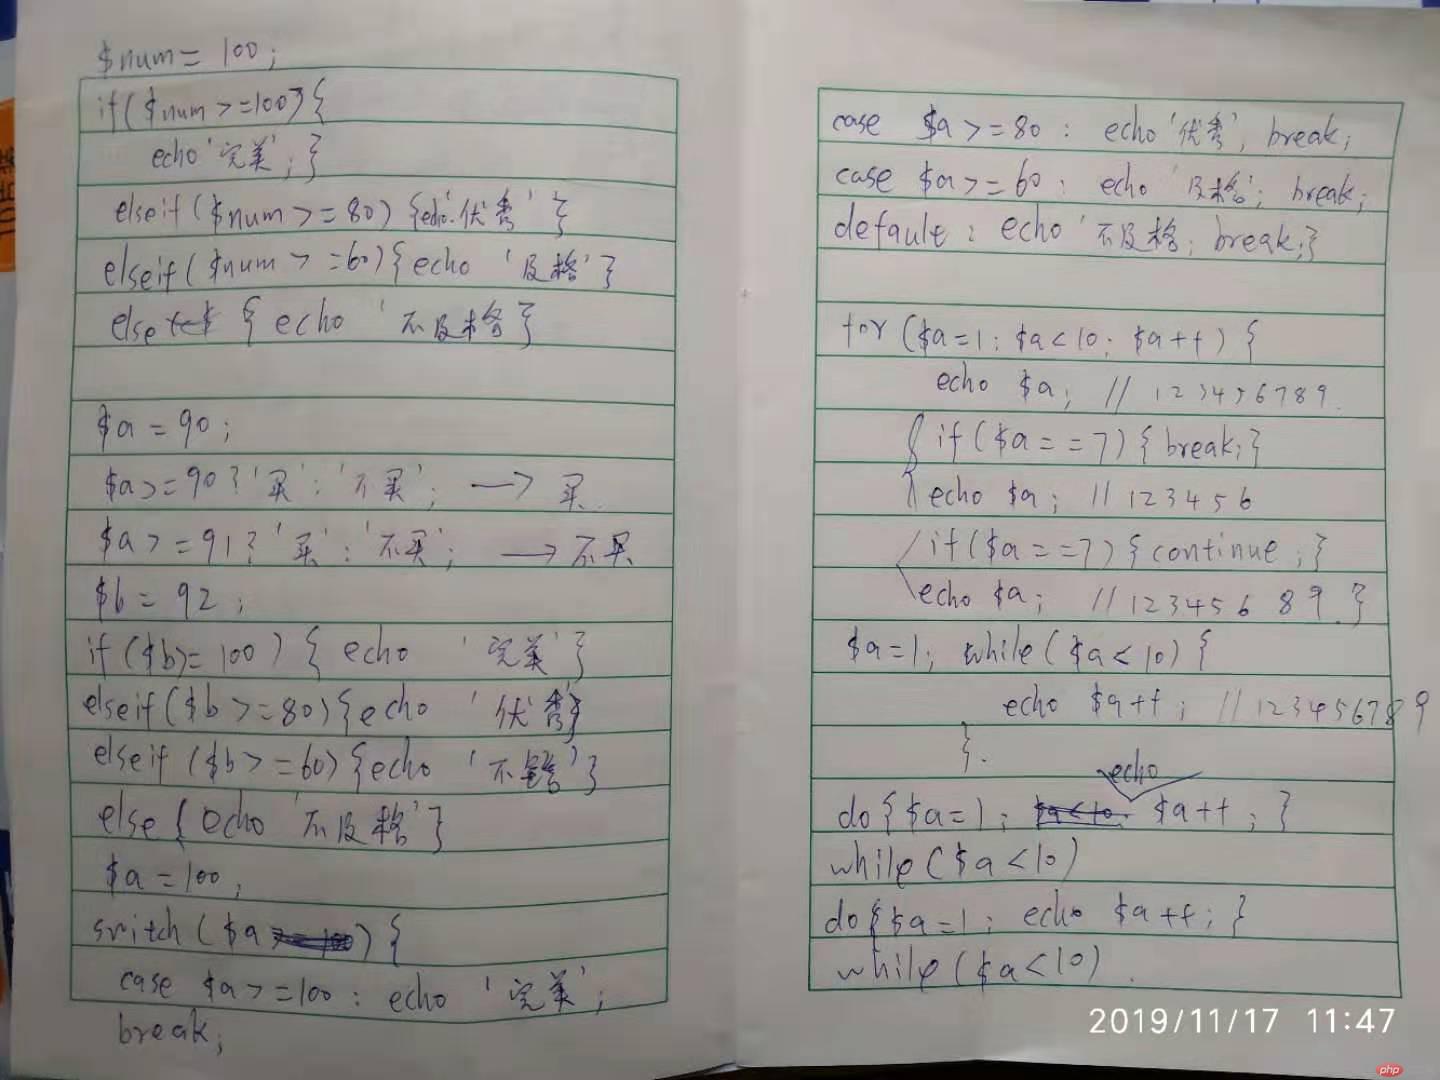 $num = 100;
if($num >=100){
echo '完美';}
elseif($num >=80) {echo '优秀'}
elseif($num >=60){echo '及格'}
else { echo '不及格}
$a = 90;
$a>=90?'买':'不买'; → 买.
$a>=91?'买':'不买'; → 不买
$b = 92;
if($b>=100) { echo '完美'}
elseif($b >=80){echo '优秀}
elseif($b>=60){echo '不错'}
else {echo '不及格'}
$a =100;
switch($a) {
case $a>=100: echo '完美';
break;
case $a>=80: echo '优秀', break;
case $a>=60: echo '及格'; break;
default: echo '不及格; break;}
for($a=1; $a<10; $a++) {
echo $a; // 123456789.
if($a==7){break;}
echo $a; // 123456
if($a==7){continue;}
echo $a; // 123456 89.}
$a=1; while($a<10){
echo $a++; // 123456789
}.
do{$a=1; echo $a++;}
while($a<10)
do{$a=1; echo $a++;}
while($a<10).
2019/11/17 11:47
php